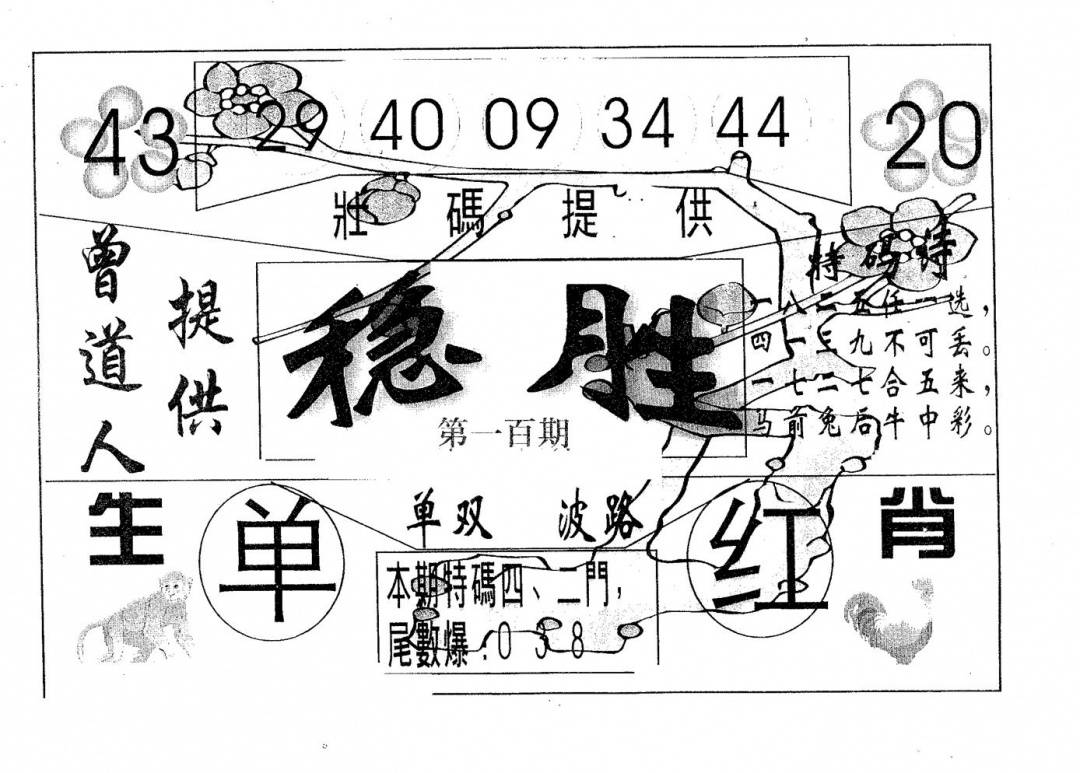 43 29 40 09 34 44 20
壯碼提供
曾道人
提供
稳胜
第一百期
特码诗
一八二五任一选，
四一三九不可丢。
一七二七合五来，
马前兔后牛中彩。
生肖
单双 波路
单
红
本期特碼四、二門，
尾數爆：0 3 8